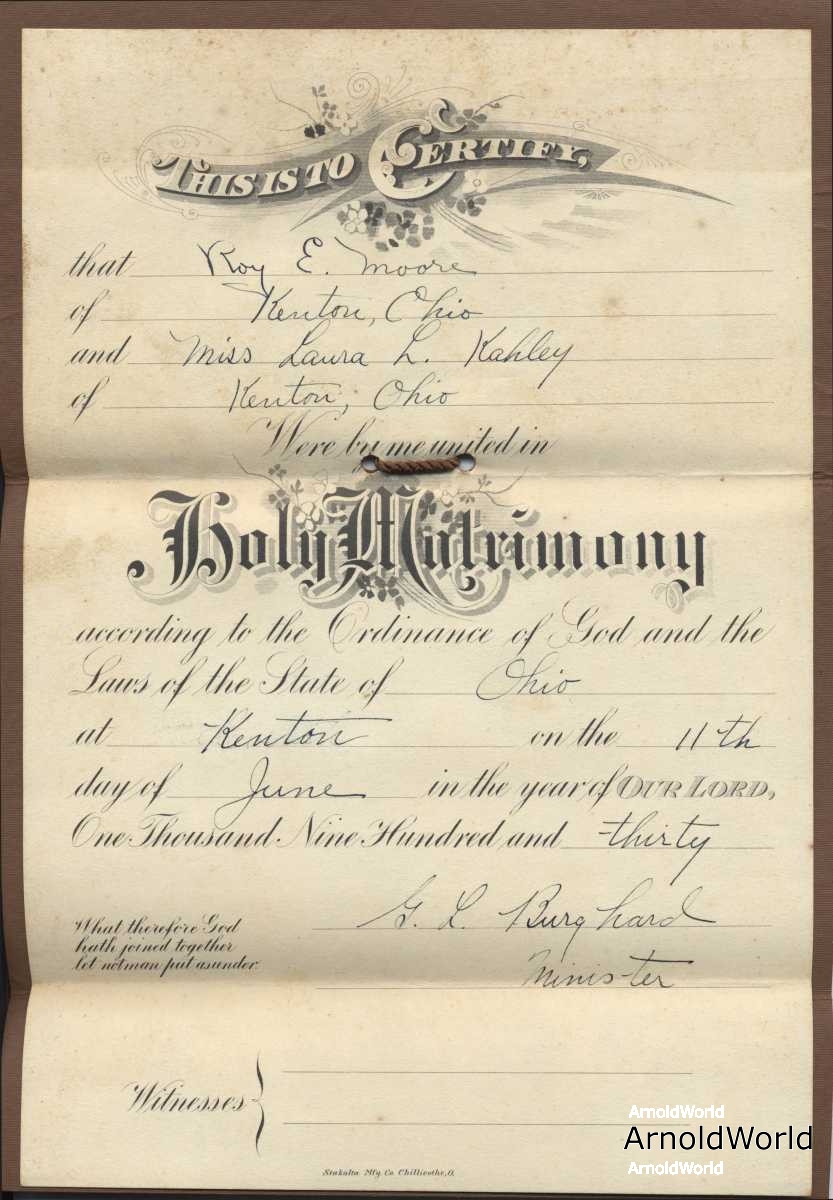 THIS IS TO CERTIFY,
that Roy E. Moore
of Kenton, Ohio
and Miss Laura L. Kahley
of Kenton, Ohio
Were by me united in
Holy Matrimony
according to the Ordinance of God and the
Laws of the State of Ohio
at Kenton on the 11th
day of June in the year of OUR LORD,
One Thousand Nine Hundred and thirty
G. L. Burghard
What therefore God
hath joined together
let not man put asunder.
Minister
Witnesses
ArnoldWorld
ArnoldWorld
ArnoldWorld
Stakalta Mfg. Co. Chillicothe, O.